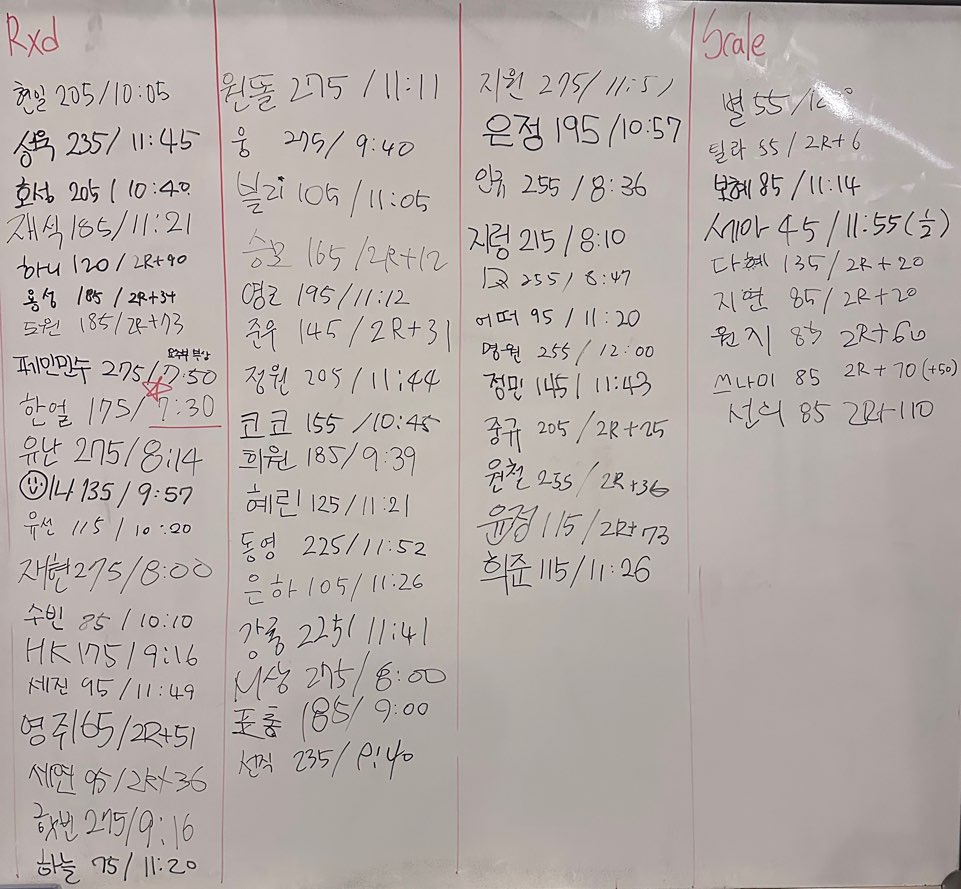 Rxd
현일 205/10:05
성욱 235/11:45
효성 205/10:40
재식 185/11:21
하니 120/2R+90
용성 185/2R+34
도원 185/2R+73
페인민수 275/7:50
한얼 175/7:30
유난 275/8:14
나 135/9:57
유선 115/10:20
재현 275/8:00
수빈 85/10:10
HK 175/9:16
세진 95/11:49
영주 165/2R+51
세연 95/2R+36
275/9:16
하늘 75/11:20
원돌 275/11:11
웅 275/9:40
빌리 105/11:05
승모 165/2R+12
195/11:12
준우 145/2R+31
정원 205/11:44
코코 155/10:45
희원 185/9:39
혜린 125/11:21
동영 225/11:52
은하 105/11:26
225/11:41
275/8:00
185/9:00
선직 235/
지원 275/11:51
은정 195/10:57
인규 255/8:36
지렁 215/8:10
255/8:47
어떠 95/11:20
명원 255/12:00
정민 145/11:43
중규 205/2R+25
원철 255/2R+36
윤정 115/2R+73
희준 115/11:26
Scale
별 55/
틸라 55/2R+6
보혜 85/11:14
세아 45/11:55(½)
다혜 135/2R+20
지연 85/2R+20
원지 85 2R+60
쓰나미 85 2R+70(+50)
선의 85 2R+110